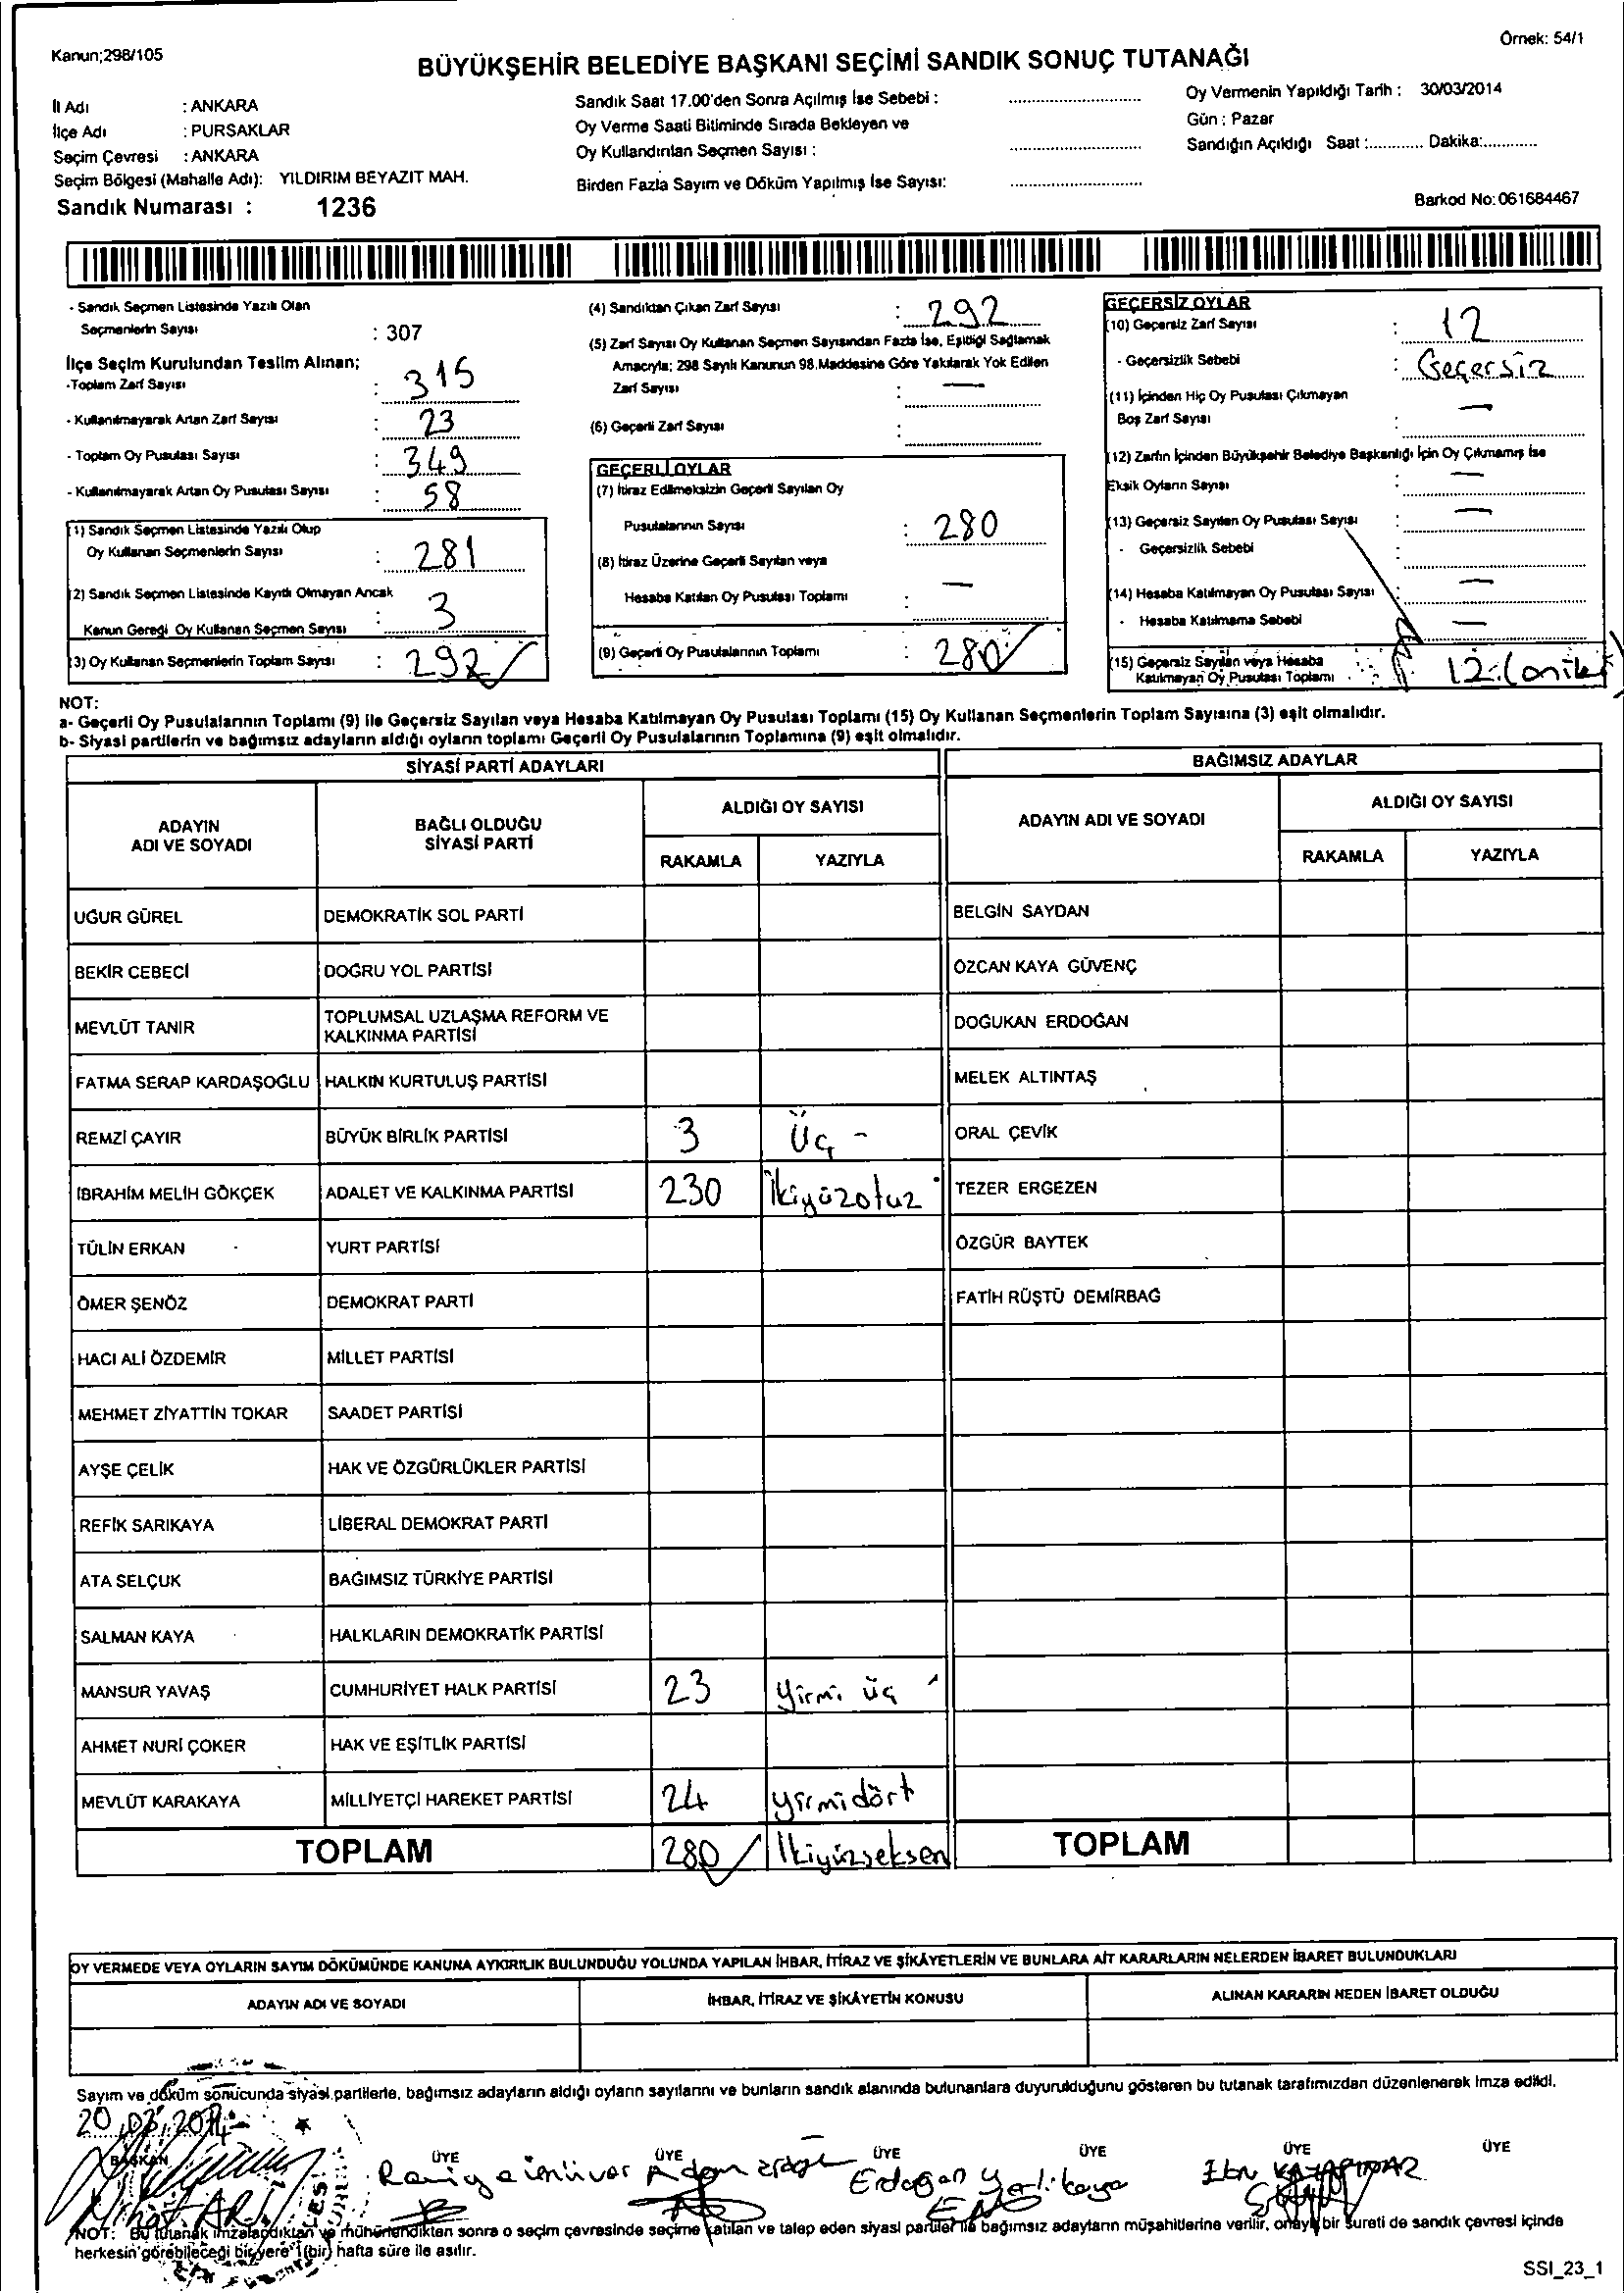 Kanun;298/105
Örnek: 54/1
BÜYÜKŞEHİR BELEDİYE BAŞKANI SEÇİMİ SANDIK SONUÇ TUTANAĞI
İl Adı : ANKARA
İlçe Adı : PURSAKLAR
Seçim Çevresi : ANKARA
Seçim Bölgesi (Mahalle Adı): YILDIRIM BEYAZIT MAH.
Sandık Numarası : 1236
Sandık Saat 17.00'den Sonra Açılmış İse Sebebi :
Oy Verme Saati Bitiminde Sırada Bekleyen ve
Oy Kullandırılan Seçmen Sayısı :
Birden Fazla Sayım ve Döküm Yapılmış İse Sayısı:
Oy Vermenin Yapıldığı Tarih : 30/03/2014
Gün : Pazar
Sandığın Açıldığı Saat :............ Dakika:............
Barkod No: 061684467
- Sandık Seçmen Listesinde Yazılı Olan
Seçmenlerin Sayısı : 307
İlçe Seçim Kurulundan Teslim Alınan;
-Toplam Zarf Sayısı : 315
- Kullanılmayarak Artan Zarf Sayısı : 23
- Toplam Oy Pusulası Sayısı : 349
- Kullanılmayarak Artan Oy Pusulası Sayısı : 58
(1) Sandık Seçmen Listesinde Yazılı Olup
Oy Kullanan Seçmenlerin Sayısı : 281
(2) Sandık Seçmen Listesinde Kayıtlı Olmayan Ancak
Kanun Gereği Oy Kullanan Seçmen Sayısı : 3
(3) Oy Kullanan Seçmenlerin Toplam Sayısı : 292
(4) Sandıktan Çıkan Zarf Sayısı : 292
(5) Zarf Sayısı Oy Kullanan Seçmen Sayısından Fazla İse, Eşitliği Sağlamak
Amacıyla; 298 Sayılı Kanunun 98.Maddesine Göre Yakılarak Yok Edilen
Zarf Sayısı : —
(6) Geçerli Zarf Sayısı :
GEÇERLİ OYLAR
(7) İtiraz Edilmeksizin Geçerli Sayılan Oy
Pusulalarının Sayısı : 280
(8) İtiraz Üzerine Geçerli Sayılan veya
Hesaba Katılan Oy Pusulası Toplamı : —
(9) Geçerli Oy Pusulalarının Toplamı : 280
GEÇERSİZ OYLAR
(10) Geçersiz Zarf Sayısı : 12
- Geçersizlik Sebebi : Geçersiz
(11) İçinden Hiç Oy Pusulası Çıkmayan
Boş Zarf Sayısı : —
(12) Zarfın İçinden Büyükşehir Belediye Başkanlığı İçin Oy Çıkmamış İse
Eksik Oyların Sayısı : —
(13) Geçersiz Sayılan Oy Pusulası Sayısı : —
- Geçersizlik Sebebi :
(14) Hesaba Katılmayan Oy Pusulası Sayısı : —
- Hesaba Katılmama Sebebi : —
(15) Geçersiz Sayılan veya Hesaba
Katılmayan Oy Pusulası Toplamı : 12 (oniki)
NOT:
a- Geçerli Oy Pusulalarının Toplamı (9) ile Geçersiz Sayılan veya Hesaba Katılmayan Oy Pusulası Toplamı (15) Oy Kullanan Seçmenlerin Toplam Sayısına (3) eşit olmalıdır.
b- Siyasi partilerin ve bağımsız adayların aldığı oyların toplamı Geçerli Oy Pusulalarının Toplamına (9) eşit olmalıdır.
SİYASİ PARTİ ADAYLARI
BAĞIMSIZ ADAYLAR
ADAYIN ADI VE SOYADI
BAĞLI OLDUĞU SİYASİ PARTİ
ALDIĞI OY SAYISI
RAKAMLA YAZIYLA
ADAYIN ADI VE SOYADI
ALDIĞI OY SAYISI
RAKAMLA YAZIYLA
UĞUR GÜREL DEMOKRATİK SOL PARTİ BELGİN SAYDAN
BEKİR CEBECİ DOĞRU YOL PARTİSİ ÖZCAN KAYA GÜVENÇ
MEVLÜT TANIR TOPLUMSAL UZLAŞMA REFORM VE KALKINMA PARTİSİ DOĞUKAN ERDOĞAN
FATMA SERAP KARDAŞOĞLU HALKIN KURTULUŞ PARTİSİ MELEK ALTINTAŞ
REMZİ ÇAYIR BÜYÜK BİRLİK PARTİSİ 3 Üç - ORAL ÇEVİK
İBRAHİM MELİH GÖKÇEK ADALET VE KALKINMA PARTİSİ 230 İkiyüzotuz TEZER ERGEZEN
TÜLİN ERKAN YURT PARTİSİ ÖZGÜR BAYTEK
ÖMER ŞENÖZ DEMOKRAT PARTİ FATİH RÜŞTÜ DEMİRBAĞ
HACI ALİ ÖZDEMİR MİLLET PARTİSİ
MEHMET ZİYATTİN TOKAR SAADET PARTİSİ
AYŞE ÇELİK HAK VE ÖZGÜRLÜKLER PARTİSİ
REFİK SARIKAYA LİBERAL DEMOKRAT PARTİ
ATA SELÇUK BAĞIMSIZ TÜRKİYE PARTİSİ
SALMAN KAYA HALKLARIN DEMOKRATİK PARTİSİ
MANSUR YAVAŞ CUMHURİYET HALK PARTİSİ 23 Yirmi üç
AHMET NURİ ÇOKER HAK VE EŞİTLİK PARTİSİ
MEVLÜT KARAKAYA MİLLİYETÇİ HAREKET PARTİSİ 24 yirmidört
TOPLAM 280 İkiyüzseksen TOPLAM
OY VERMEDE VEYA OYLARIN SAYIM DÖKÜMÜNDE KANUNA AYKIRILIK BULUNDUĞU YOLUNDA YAPILAN İHBAR, İTİRAZ VE ŞİKÂYETLERİN VE BUNLARA AİT KARARLARIN NELERDEN İBARET BULUNDUKLARI
ADAYIN ADI VE SOYADI İHBAR, İTİRAZ VE ŞİKÂYETİN KONUSU ALINAN KARARIN NEDEN İBARET OLDUĞU
Sayım ve döküm sonucunda siyasi partilerle, bağımsız adayların aldığı oyların sayılarını ve bunların sandık alanında bulunanlara duyurulduğunu gösteren bu tutanak tarafımızdan düzenlenerek imza edildi.
20.03.2014
BAŞKAN ÜYE ÜYE ÜYE ÜYE ÜYE ÜYE
Adem Erdoğan Yerlikaya
NOT: Bu tutanak imzalandıktan ve mühürlendikten sonra o seçim çevresinde seçime katılan ve talep eden siyasi partiler ile bağımsız adayların müşahitlerine verilir, onaylı bir sureti de sandık çevresi içinde
herkesin görebileceği bir yere 1(bir) hafta süre ile asılır.
SSI_23_1